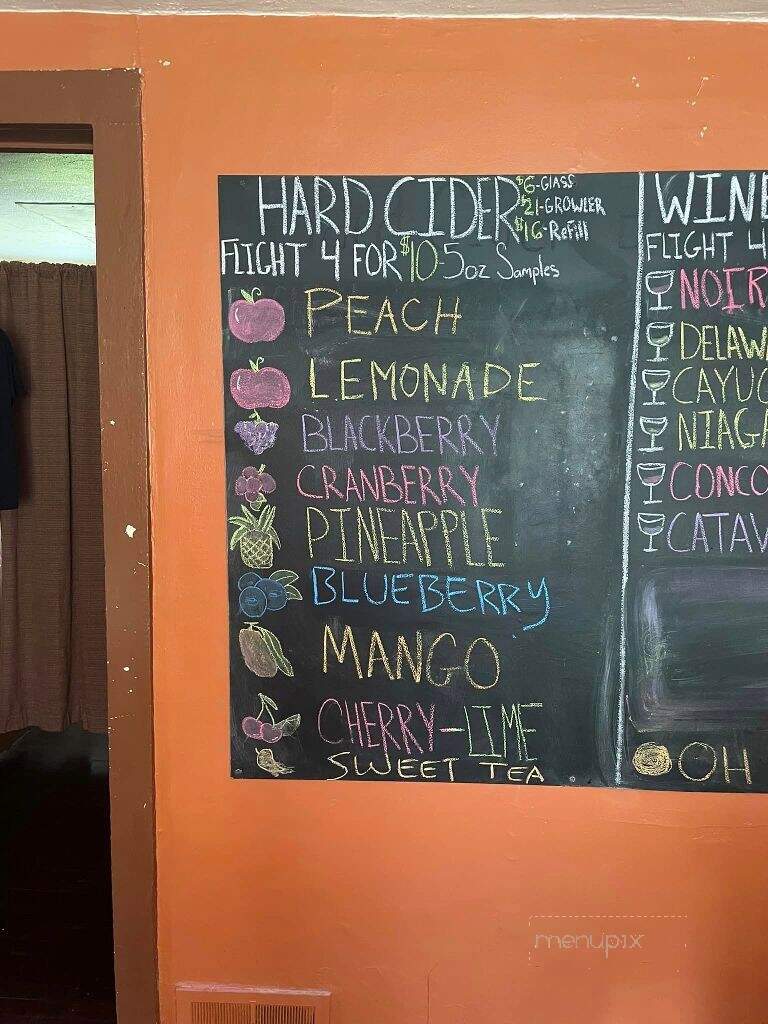 HARD CIDER
$6-GLASS
$21-GROWLER
$16-Refill
FLIGHT 4 FOR $10 5oz Samples
PEACH
LEMONADE
BLACKBERRY
CRANBERRY
PINEAPPLE
BLUEBERRY
MANGO
CHERRY-LIME
SWEET TEA
WINE
FLIGHT 4
NOIR
DELAW
CAYUG
NIAGA
CONCO
CATAW
OH
menupix